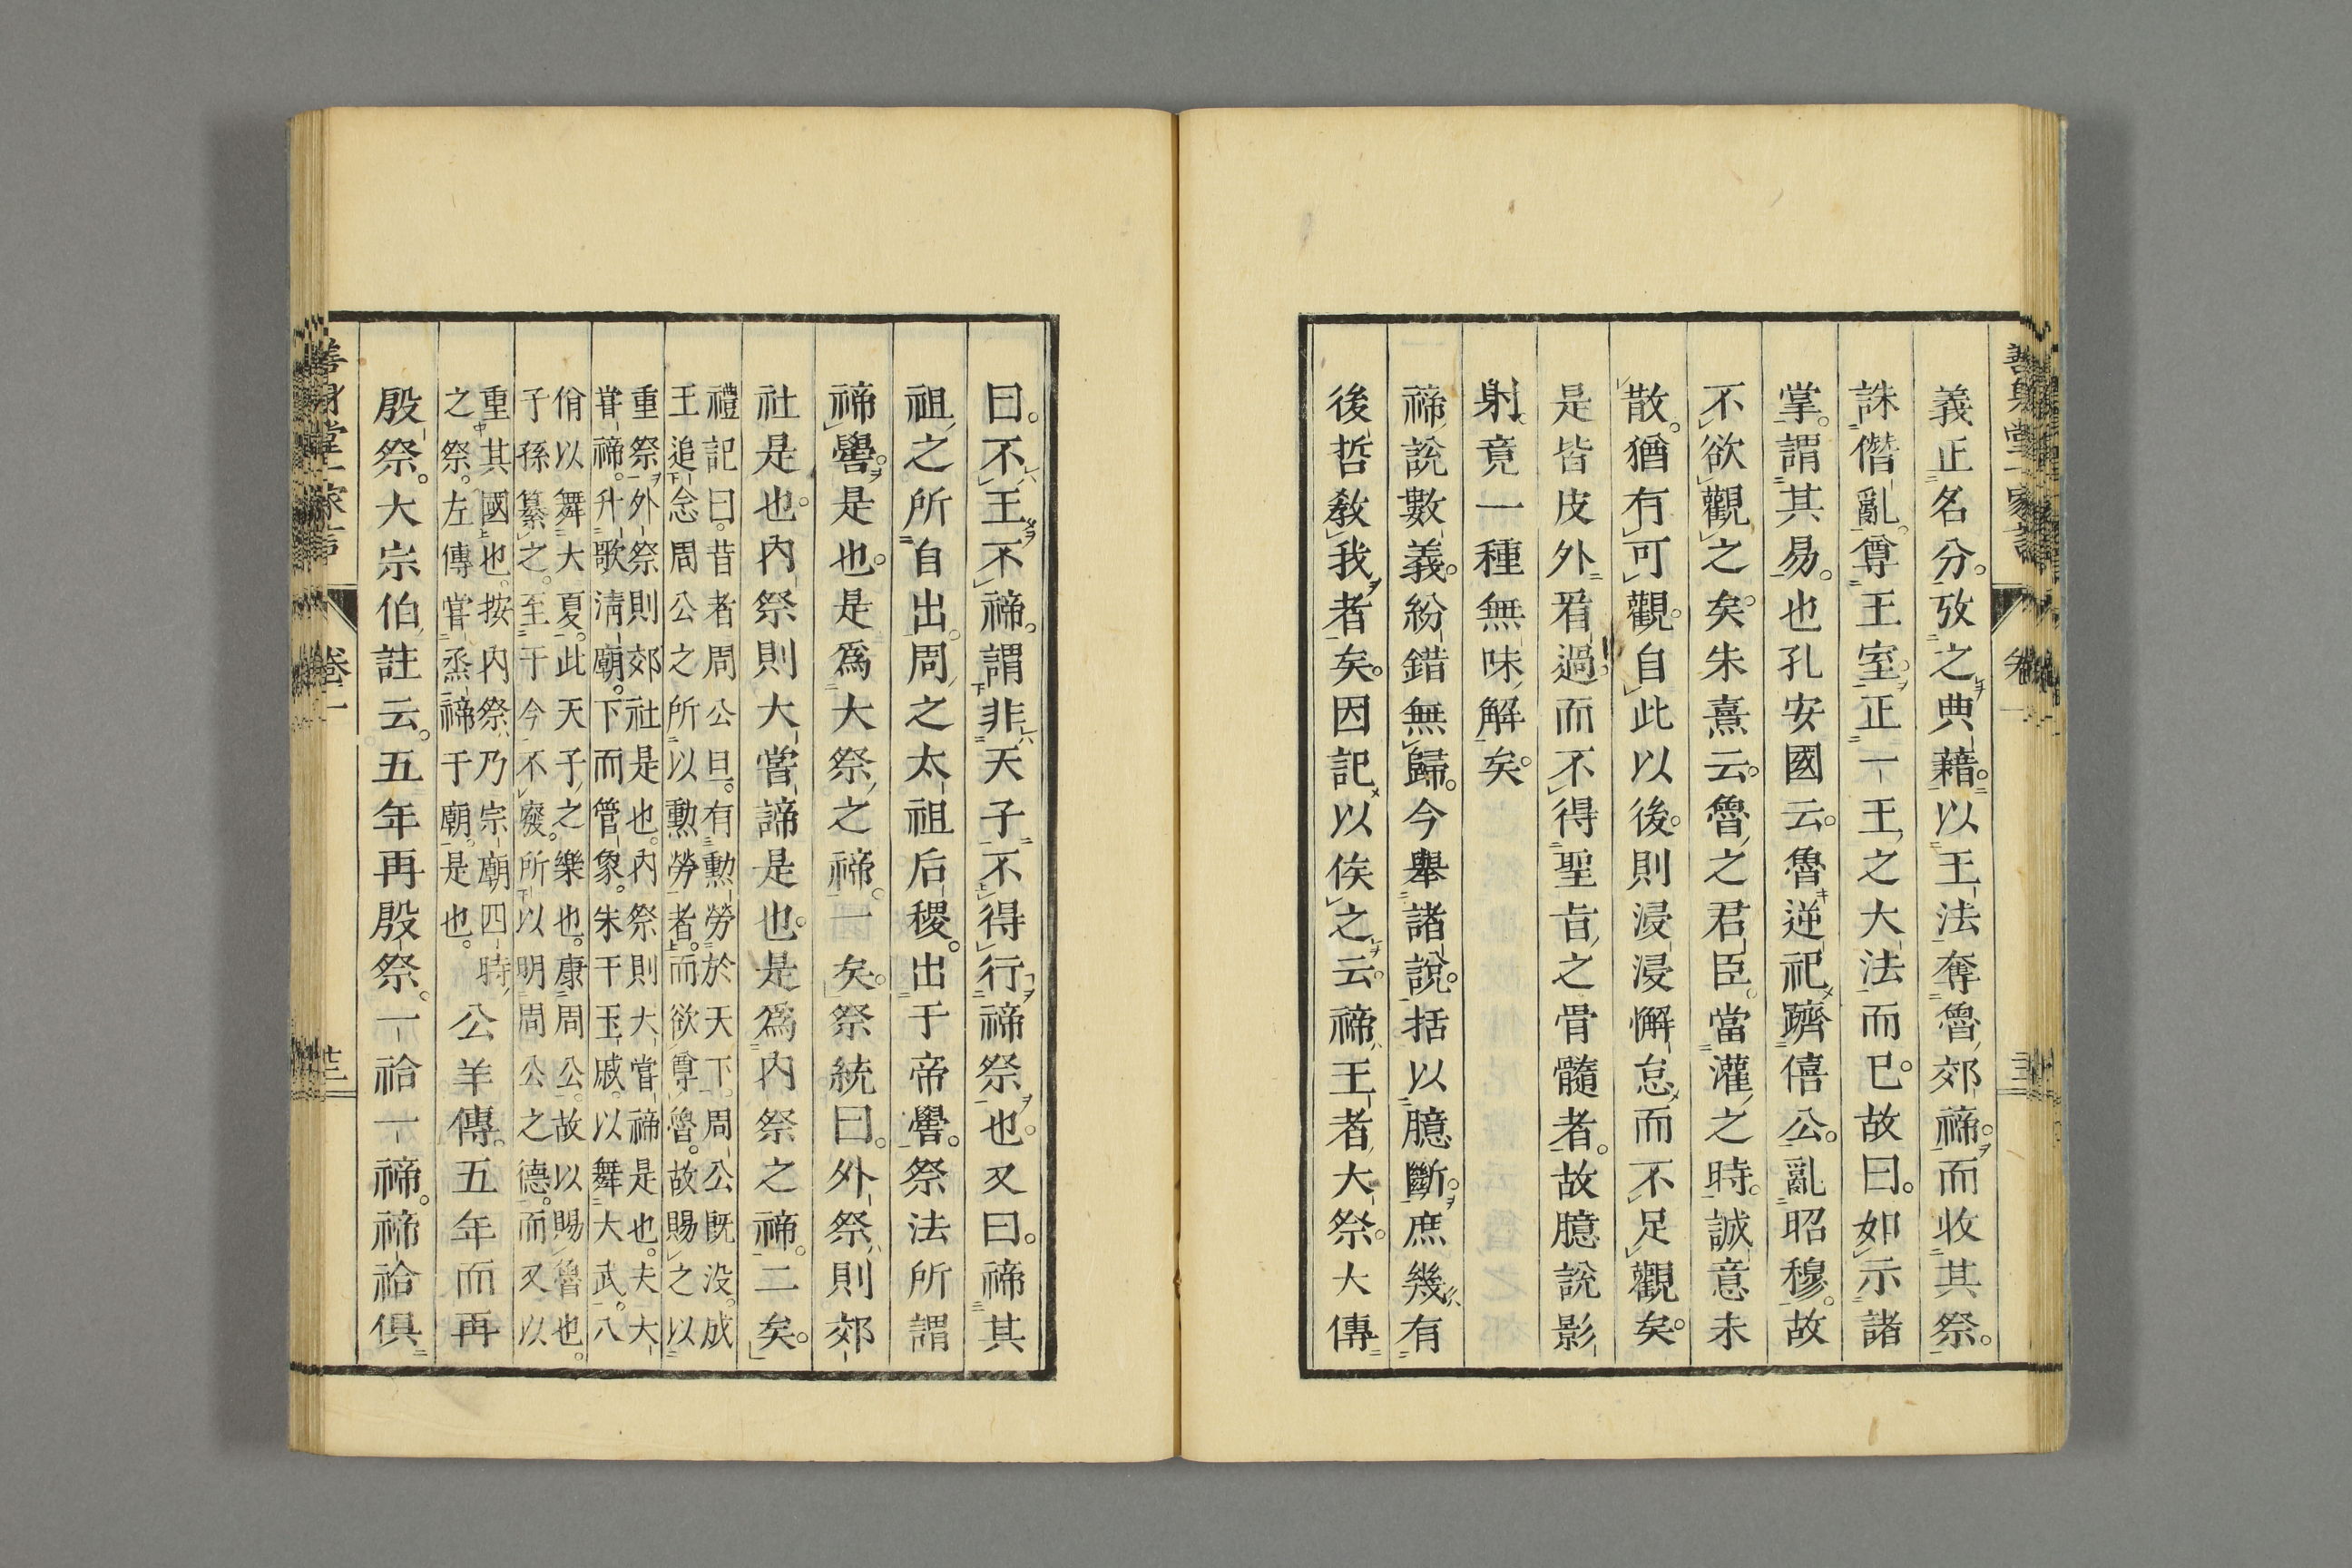 義正名分。攷之典藉。以王法奪魯郊禘。而收其祭。
誅僭亂。尊王室。正一王之大法而已。故曰。如示諸
掌。謂其易。也孔安國云。魯逆祀躋僖公。亂昭穆。故
不欲觀之矣。朱熹云。魯之君臣。當灌之時。誠意未
散。猶有可觀。自此以後。則浸浸懈怠而不足觀矣。
是皆皮外看過。而不得聖旨之骨髓者。故臆說影
射竟一種無味解矣。
禘說數義。紛錯無歸。今舉諸說。括以臆斷。庶幾有
後哲教我者矣。因記以俟之云。禘王者大祭。大傳
曰。不王不禘。謂非天子不得行禘祭也。又曰。禘其
祖之所自出。周之太祖后稷。出于帝嚳。祭法所謂
禘嚳。是也。是爲大祭之禘。一矣。祭統曰。外祭則郊
社是也。內祭則大嘗諦是也。是爲內祭之禘。二矣。
禮記曰。昔者周公旦。有勳勞於天下。周公既没。成
王追念周公之所以勳勞者。而欲尊魯。故賜之以
重祭。外祭則郊社是也。內祭則大嘗禘是也。夫大
嘗禘。升歌淸廟。下而管象。朱干玉戚。以舞大武。八
佾以舞大夏。此天子之樂也。康周公。故以賜魯也。
子孫纂之。至于今不廢。所以明周公之德。而又以
重其國也。按內祭乃宗廟四時
之祭。左傳嘗烝禘于廟。是也。
公羊傳。五年而再
殷祭。大宗伯註云。五年再殷祭。一祫一禘。禘祫俱